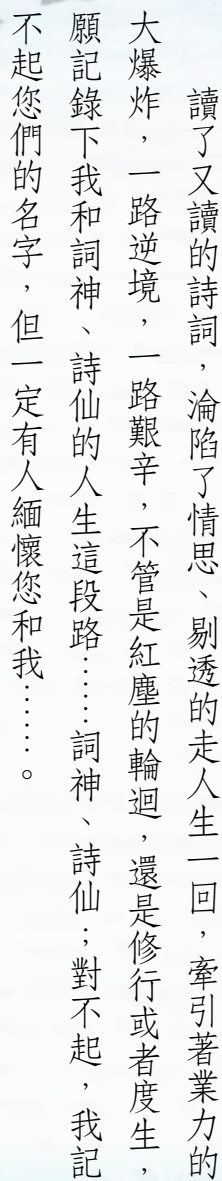 讀了又讀的詩詞，淪陷了情思、剔透的走人生一回，牽引著業力的
大爆炸，一路逆境，一路艱辛，不管是紅塵的輪迴，還是修行或者度生，
願記錄下我和詞神、詩仙的人生這段路……詞神、詩仙；對不起，我記
不起您們的名字，但一定有人緬懷您和我……。